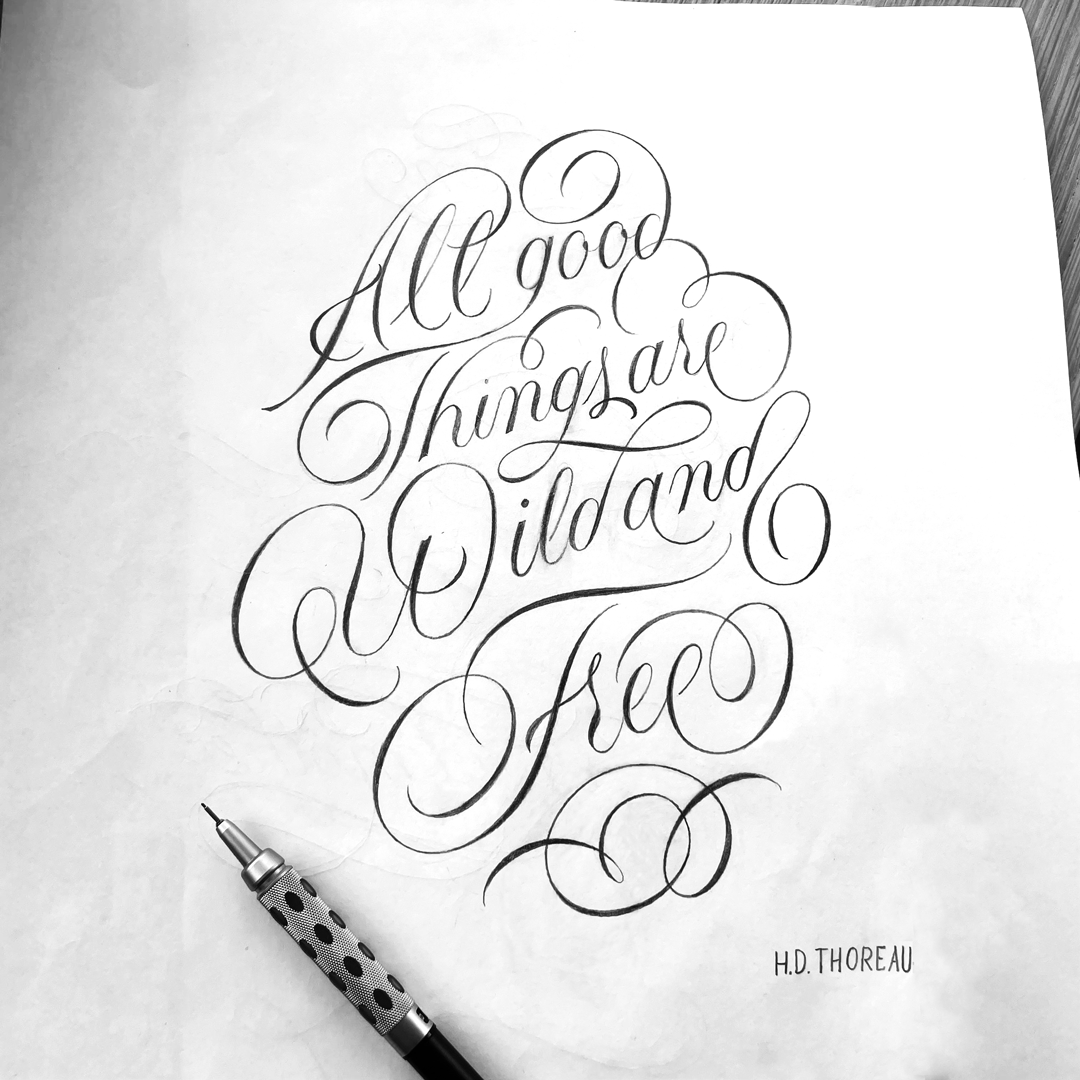 All good
Things are
Wild and
Free
H.D. THOREAU